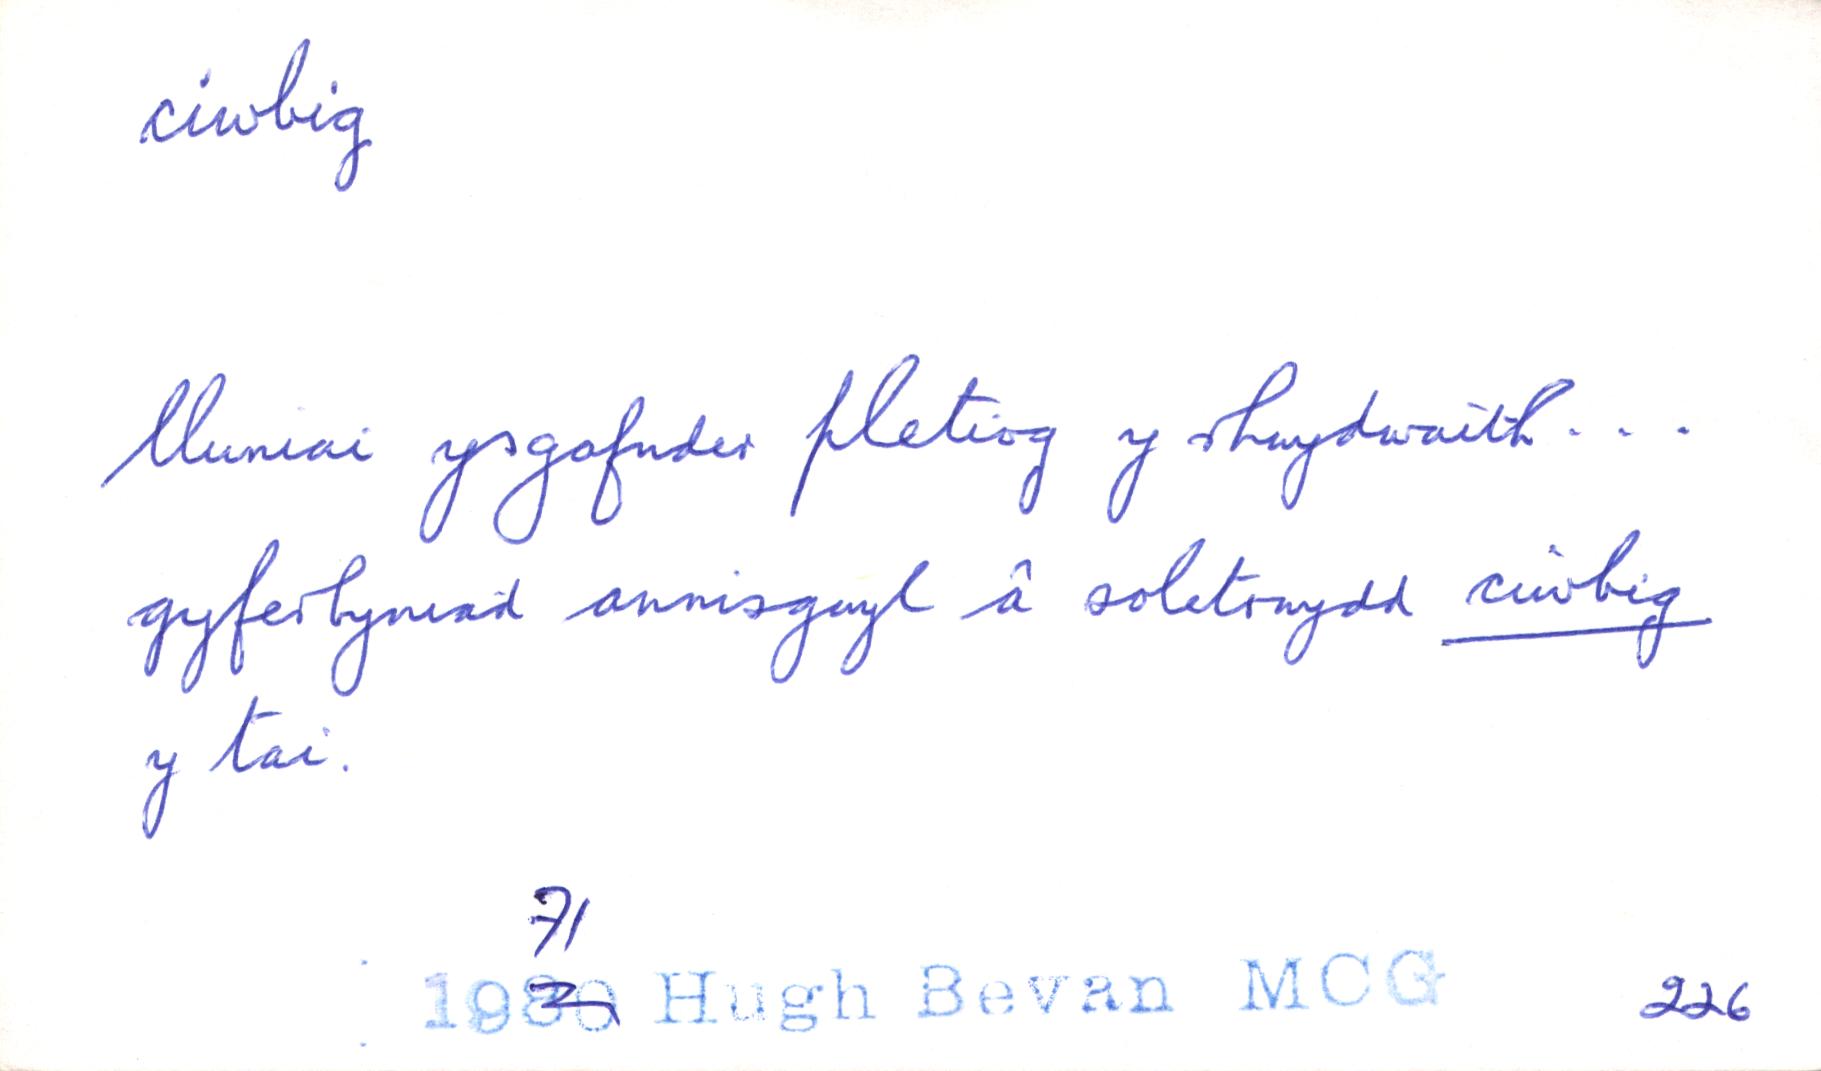 ciwbig
lluniai ysgafnder pletiog y rhwydwaith...
gyferbyniad annisgwyl â soletrwydd ciwbig
y tai.
71
1980 Hugh Bevan MCG 226